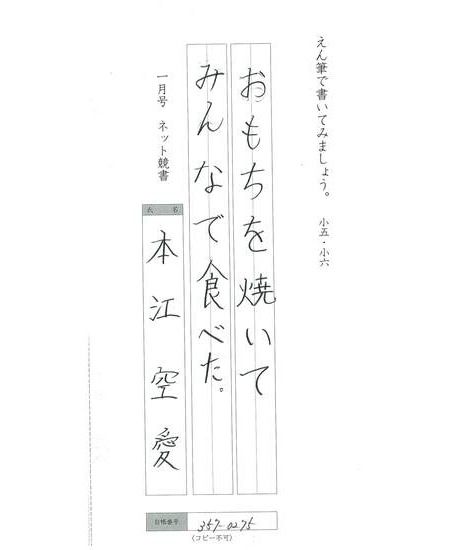 えん筆で書いてみましょう。 小五・小六
おもちを焼いて
みんなで食べた。
一月号 ネット競書
氏名
本江空愛
台帳番号 357-0275
(コピー不可)